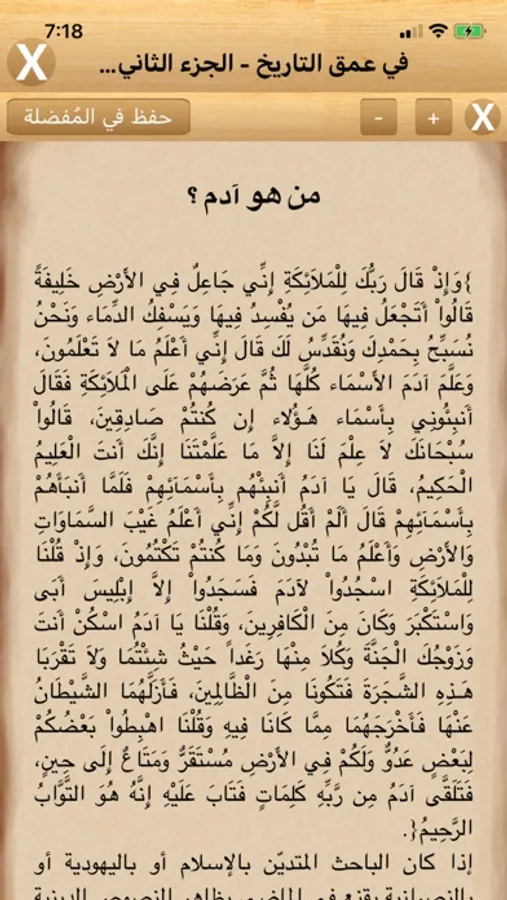 7:18
في عمق التاريخ - الجزء الثاني...
X
حفظ في المُفضلة
-
+
X
من هو آدم ؟
}وَإِذْ قَالَ رَبُّكَ لِلْمَلاَئِكَةِ إِنِّي جَاعِلٌ فِي الأَرْضِ خَلِيفَةً
قَالُواْ أَتَجْعَلُ فِيهَا مَن يُفْسِدُ فِيهَا وَيَسْفِكُ الدِّمَاء وَنَحْنُ
نُسَبِّحُ بِحَمْدِكَ وَنُقَدِّسُ لَكَ قَالَ إِنِّي أَعْلَمُ مَا لاَ تَعْلَمُونَ،
وَعَلَّمَ آدَمَ الأَسْمَاء كُلَّهَا ثُمَّ عَرَضَهُمْ عَلَى الْمَلاَئِكَةِ فَقَالَ
أَنبِئُونِي بِأَسْمَاء هَـؤُلاء إِن كُنتُمْ صَادِقِينَ، قَالُواْ
سُبْحَانَكَ لاَ عِلْمَ لَنَا إِلاَّ مَا عَلَّمْتَنَا إِنَّكَ أَنتَ الْعَلِيمُ
الْحَكِيمُ، قَالَ يَا آدَمُ أَنبِئْهُم بِأَسْمَائِهِمْ فَلَمَّا أَنبَأَهُمْ
بِأَسْمَائِهِمْ قَالَ أَلَمْ أَقُل لَّكُمْ إِنِّي أَعْلَمُ غَيْبَ السَّمَاوَاتِ
وَالأَرْضِ وَأَعْلَمُ مَا تُبْدُونَ وَمَا كُنتُمْ تَكْتُمُونَ، وَإِذْ قُلْنَا
لِلْمَلاَئِكَةِ اسْجُدُواْ لآدَمَ فَسَجَدُواْ إِلاَّ إِبْلِيسَ أَبَى
وَاسْتَكْبَرَ وَكَانَ مِنَ الْكَافِرِينَ، وَقُلْنَا يَا آدَمُ اسْكُنْ أَنتَ
وَزَوْجُكَ الْجَنَّةَ وَكُلاَ مِنْهَا رَغَداً حَيْثُ شِئْتُمَا وَلاَ تَقْرَبَا
هَـذِهِ الشَّجَرَةَ فَتَكُونَا مِنَ الْظَّالِمِينَ، فَأَزَلَّهُمَا الشَّيْطَانُ
عَنْهَا فَأَخْرَجَهُمَا مِمَّا كَانَا فِيهِ وَقُلْنَا اهْبِطُواْ بَعْضُكُمْ
لِبَعْضٍ عَدُوٌّ وَلَكُمْ فِي الأَرْضِ مُسْتَقَرٌّ وَمَتَاعٌ إِلَى حِينٍ،
فَتَلَقَّى آدَمُ مِن رَّبِّهِ كَلِمَاتٍ فَتَابَ عَلَيْهِ إِنَّهُ هُوَ التَّوَّابُ
الرَّحِيمُ{.
إذا كان الباحث المتديّن بالإسلام أو باليهودية أو
بالنصرانية يقنع في الماضي بظاهر النصوص الدينية